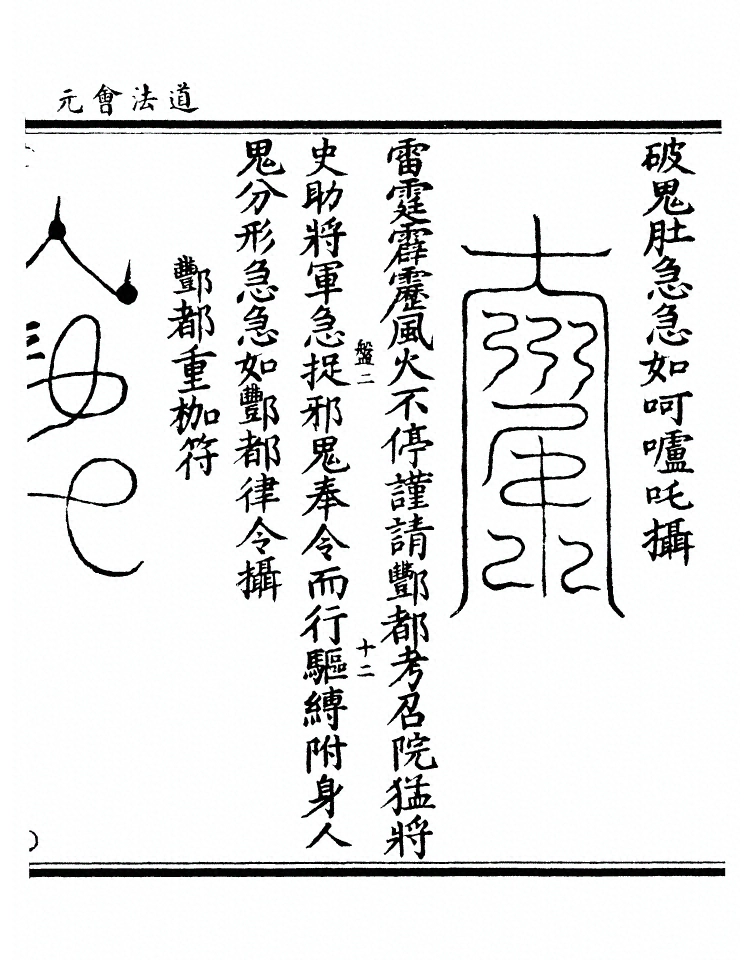 道法會元
破鬼肚急急如呵嚧吒攝
雷霆霹靂風火不停謹請酆都考召院猛將
盤二
十二
史助將軍急捉邪鬼奉令而行驅縛附身人
鬼分形急急如酆都律令攝
酆都重枷符